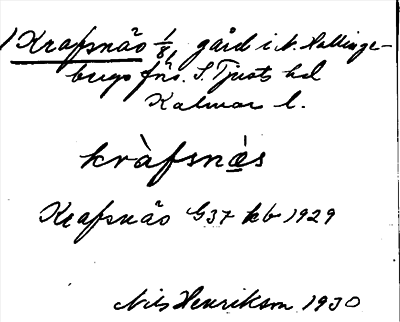 1 Krafsnäs 1/8, gård i N. Hallinge-
bergs fns. S. Tjusts hd
Kalmar l.
kràfsnæ̀s
Krafsnäs G37 kb 1929
Nils Henrikson 1930